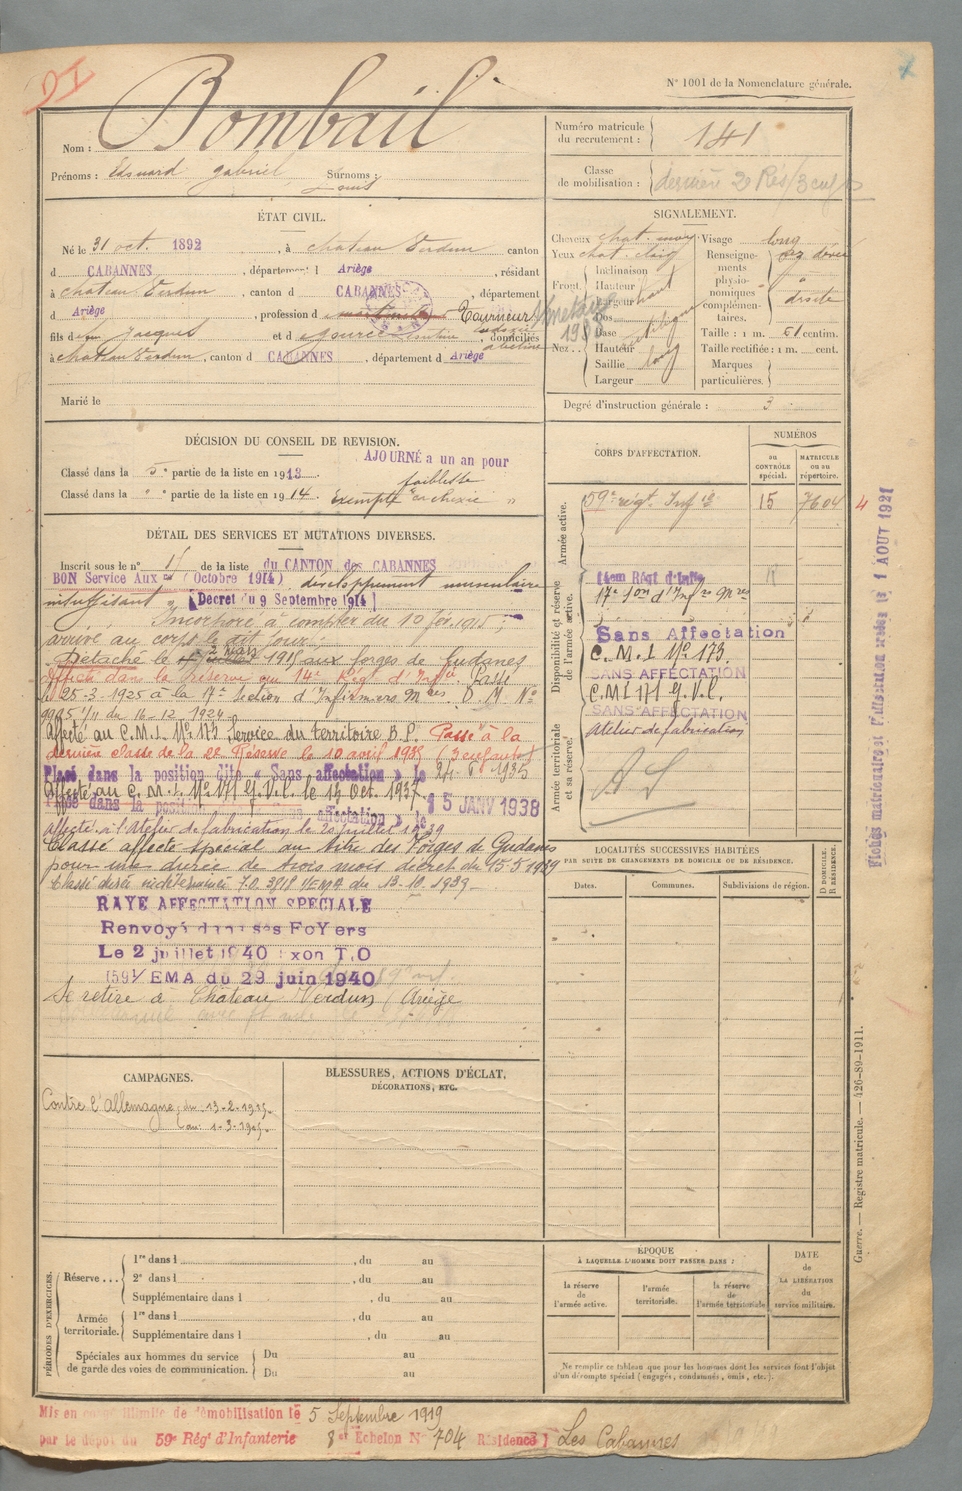 DI
N° 1001 de la Nomenclature générale.
Nom : Bombail
Prénoms : Edouard Gabriel Louis
Surnoms :
Numéro matricule du recrutement : 141
Classe de mobilisation : dernière 2e Rés/3 enf
ÉTAT CIVIL.
Né le 31 oct. 1892, à Chateau Verdun canton
d CABANNES, département d Ariège, résidant
à Chateau Verdun, canton d CABANNES, département
d Ariège, profession d Tourneur
fils d Jacques et d domiciliés
à Chateau Verdun, canton d CABANNES, département d Ariège
Marié le
SIGNALEMENT.
Cheveux chat. moy.
Yeux chat. clair
Front.
Inclinaison
Hauteur
Largeur
Nez..
Dos
Base
Hauteur
Saillie
Largeur
Visage long
Renseignements physionomiques complémentaires.
Taille : 1 m. 51 centim.
Taille rectifiée : 1 m. cent.
Marques particulières.
Degré d'instruction générale : 3
DÉCISION DU CONSEIL DE REVISION.
Classé dans la 5e partie de la liste en 1913. AJOURNÉ a un an pour
faiblesse
Classé dans la " ° partie de la liste en 1914. Exempté "
DÉTAIL DES SERVICES ET MUTATIONS DIVERSES.
Inscrit sous le n° 1 de la liste du CANTON des CABANNES
BON Service Aux (Octobre 1914) développement musculaire
insuffisant " Decret du 9 Septembre 1914
Incorporé à compter du 10 fév. 1915 ;
arrivé au corps le dit jour ;
Détaché le 2 mars 1915 aux forges de Gudanes
Affecté dans la réserve au 14e Régt d'Infie. Passé
le 25-3-1925 à la 17e Section d'Infirmiers Mres D.M. N°
9995 1/11 du 16-12-1924
Affecté au C.M.I. N° 173 Service du territoire B.P. Passé à la
dernière classe de la 2e Réserve le 10 avril 1935 (3 enfants)
Placé dans la position dite « Sans affectation » le 1935
Affecté au C.M.I. N° 171 G.V.C. le 13 Oct. 1937
Placé dans la position affectation » le 15 JANV 1938
affecté à l'Atelier de fabrication le 20 juillet 1939
Classé affecté spécial au titre des Forges de Gudanes
pour une durée de trois mois décret du 15-5 1939
Classé durée indéterminée T.O. 3818 1/EMA du 13.10.1939
RAYE AFFECTATION SPECIALE
Renvoyé dans ses FoYers
Le 2 juillet 1940 T.O
/EMA du 29 juin 1940
Se retire à Chateau Verdun (Ariège
CORPS D'AFFECTATION.
NUMÉROS
au CONTRÔLE spécial.
MATRICULE ou au répertoire.
Armée active.
59e régt. Infie 15 7604
Disponibilité et réserve de l'armée active.
14em Régt d'Infie
17e Son d'Infres Mres
Sans Affectation
C.M.I N° 173
SANS AFFECTATION
C.M.I 171 G.V.C.
SANS AFFECTATION
Armée territoriale et sa réserve.
Atelier de fabrication
Fiches matricule et d'Affectation créées le 1 AOUT 1921
LOCALITÉS SUCCESSIVES HABITÉES
PAR SUITE DE CHANGEMENTS DE DOMICILE OU DE RÉSIDENCE.
Dates.
Communes.
Subdivisions de région.
D DOMICILE.
R RÉSIDENCE.
CAMPAGNES.
Contre l'Allemagne du 13-2-1915.
au 1-3-1915.
BLESSURES, ACTIONS D'ÉCLAT,
DÉCORATIONS, ETC.
PÉRIODES D'EXERCICES.
Réserve...
1re dans l , du au
2e dans l , du au
Supplémentaire dans l , du au
Armée territoriale.
1re dans l , du au
Supplémentaire dans l , du au
Spéciales aux hommes du service de garde des voies de communication.
Du au
Du au
ÉPOQUE
À LAQUELLE L'HOMME DOIT PASSER DANS :
la réserve de l'armée active.
l'armée territoriale.
la réserve de l'armée territoriale
DATE de LA LIBÉRATION du service militaire.
Ne remplir ce tableau que pour les hommes dont les services font l'objet
d'un décompte spécial (engagés, condamnés, omis, etc.).
Guerre. — Registre matricule. — 426-89-1911.
Mis en congé illimité de démobilisation le 5 Septembre 1919
par le dépôt du 59e Régt d'Infanterie 8e Echelon N° 704 Résidence } Les Cabannes